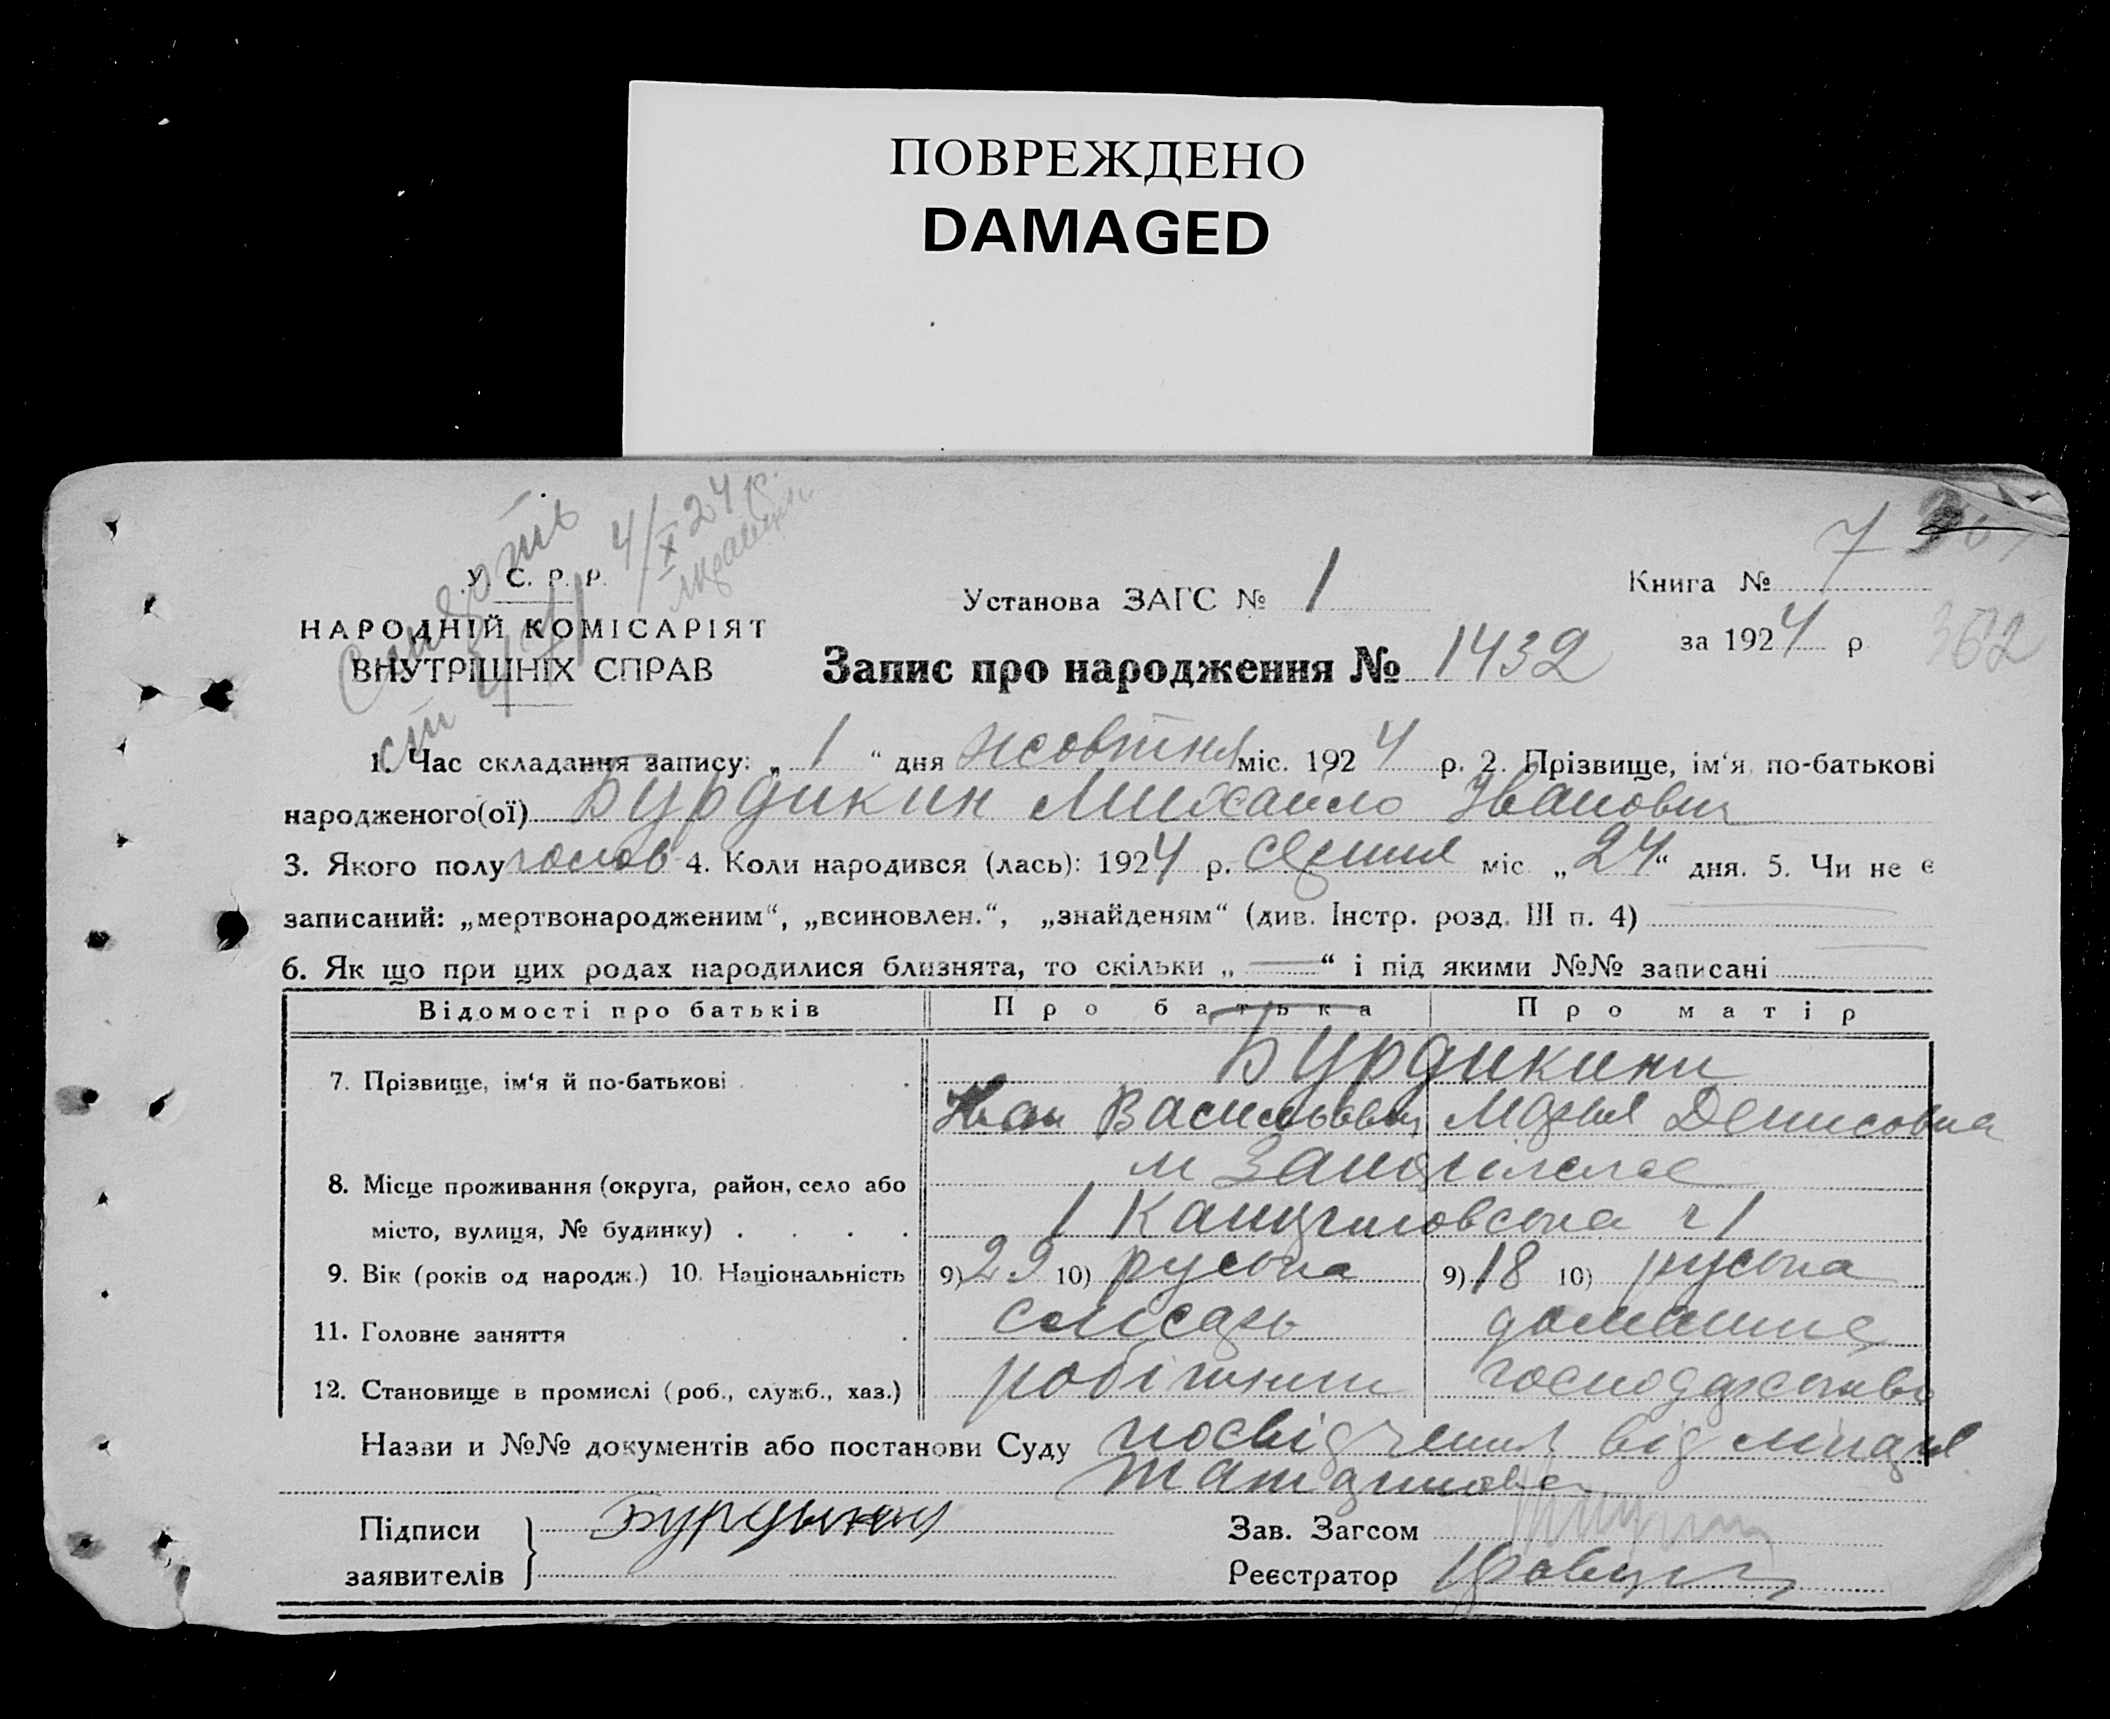 ПОВРЕЖДЕНО
DAMAGED
4/X 24 р.
У. С. Р. Р.
НАРОДНІЙ КОМІСАРІЯТ
ВНУТРІШНІХ СПРАВ
Установа ЗАГС № 1
Книга № 7
за 1924 р
362
Запис про народження № 1432
1. Час складання запису: „ 1 “ дня жовтня міс. 1924 р. 2. Прізвище, ім‘я, по-батькові
народженого(ої) Бурдикин Михайло Іванович
3. Якого полу чолов 4. Коли народився (лась): 1924 р. серпня міс „24“ дня. 5. Чи не є
записаний: „мертвонародженим“, „всиновлен.“, „знайденям“ (див. Інстр. розд. III п. 4)
6. Як що при цих родах народилися близнята, то скільки „ — “ і під якими №№ записані
Відомості про батьків Про батька Про матір
7. Прізвище, ім‘я й по-батькові Бурдикини
Иван Васильевич Мария Денисовна
8. Місце проживання (округа, район, село або м
місто, вулиця, № будинку) 1
9. Вік (років од народж.) 10. Національність 9) 29 10) руська 9) 18 10) руська
11. Головне заняття слюсарь домашнє
12. Становище в промислі (роб., служб., хаз.) робітник господарство
Назви и №№ документів або постанови Суду посвідчення від
Підписи
заявителів
Зав. Загсом
Реєстратор